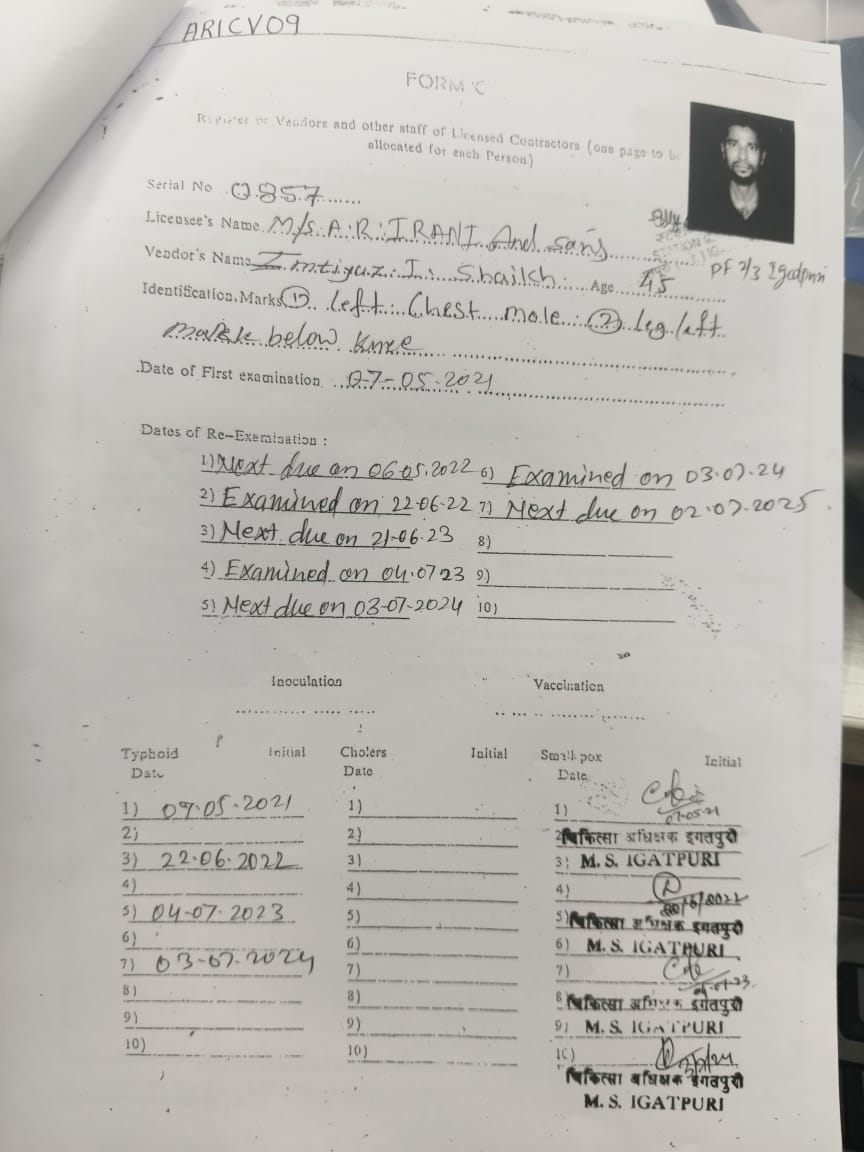 ARICV09
FORM 'C
Register of Vendors and other staff of Licensed Contractors (one page to be
allocated for each Person)
Serial No 0857
Licensee's Name M/s. A. R. IRANI And sans
Vendor's Name Imtiyaz. I. Shaikh Age 45
PF 2/3 Igatpuri
Identification Marks ① left Chest mole ② leg left
mark below Knee
Date of First examination 07-05-2021
Dates of Re-Examination :
1) Next due on 06.05.2022 6) Examined on 03.07.24
2) Examined on 22-06-22 7) Next due on 02.07.2025
3) Next due on 21-06-23 8)
4) Examined on 04.07.23 9)
5) Next due on 03-07-2024 10)
Inoculation Vaccination
Typhoid Initial Cholers Initial Small pox Initial
Date Date Date
1) 07-05-2021 1) 1)
07-05-21
2) 2) 2) चिकित्सा अधिक्षक इगतपुरी
3) 22-06-2022 3) 3) M. S. IGATPURI
4) 4) 4)
5) 04-07-2023 5) 5) चिकित्सा अधिक्षक इगतपुरी
6) 6) 6) M. S. IGATPURI
7) 03-07-2024 7) 7)
8) 8) 8 चिकित्सा अधिक्षक इगतपुरी
9) 9) 9) M. S. IGATPURI
10) 10) 10)
चिकित्सा अधिक्षक इगतपुरी
M. S. IGATPURI